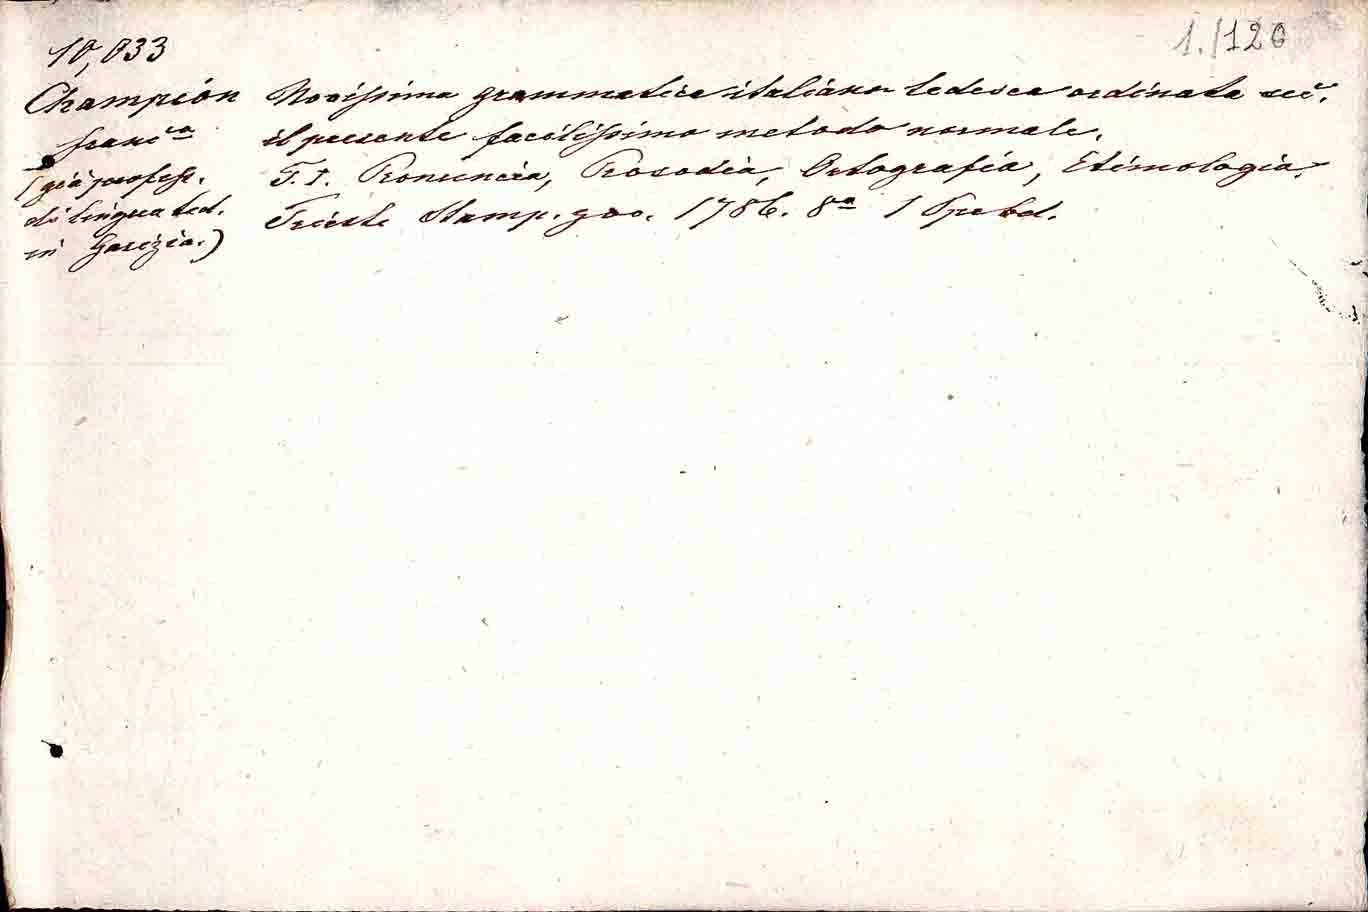 1./120
10,033
Champion
franc.a
(già profess.
di lingua ted.
in Gorizia.)
Novissima grammatica italiano tedesca ordinata sec.
il presente facilissimo metodo normale.
T. 1. Pronuncia, Prosodia, Ortografia, Etimologia.
Trieste Stamp. gov. 1786. 8a 1